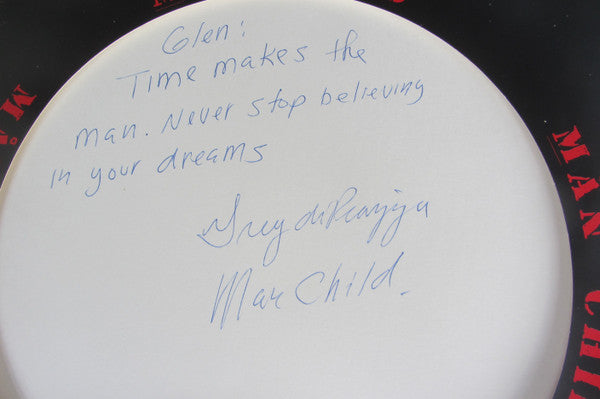 Glen:
Time makes the
man. Never stop believing
in your dreams
Greg
Man Child.
MAN CHI
M